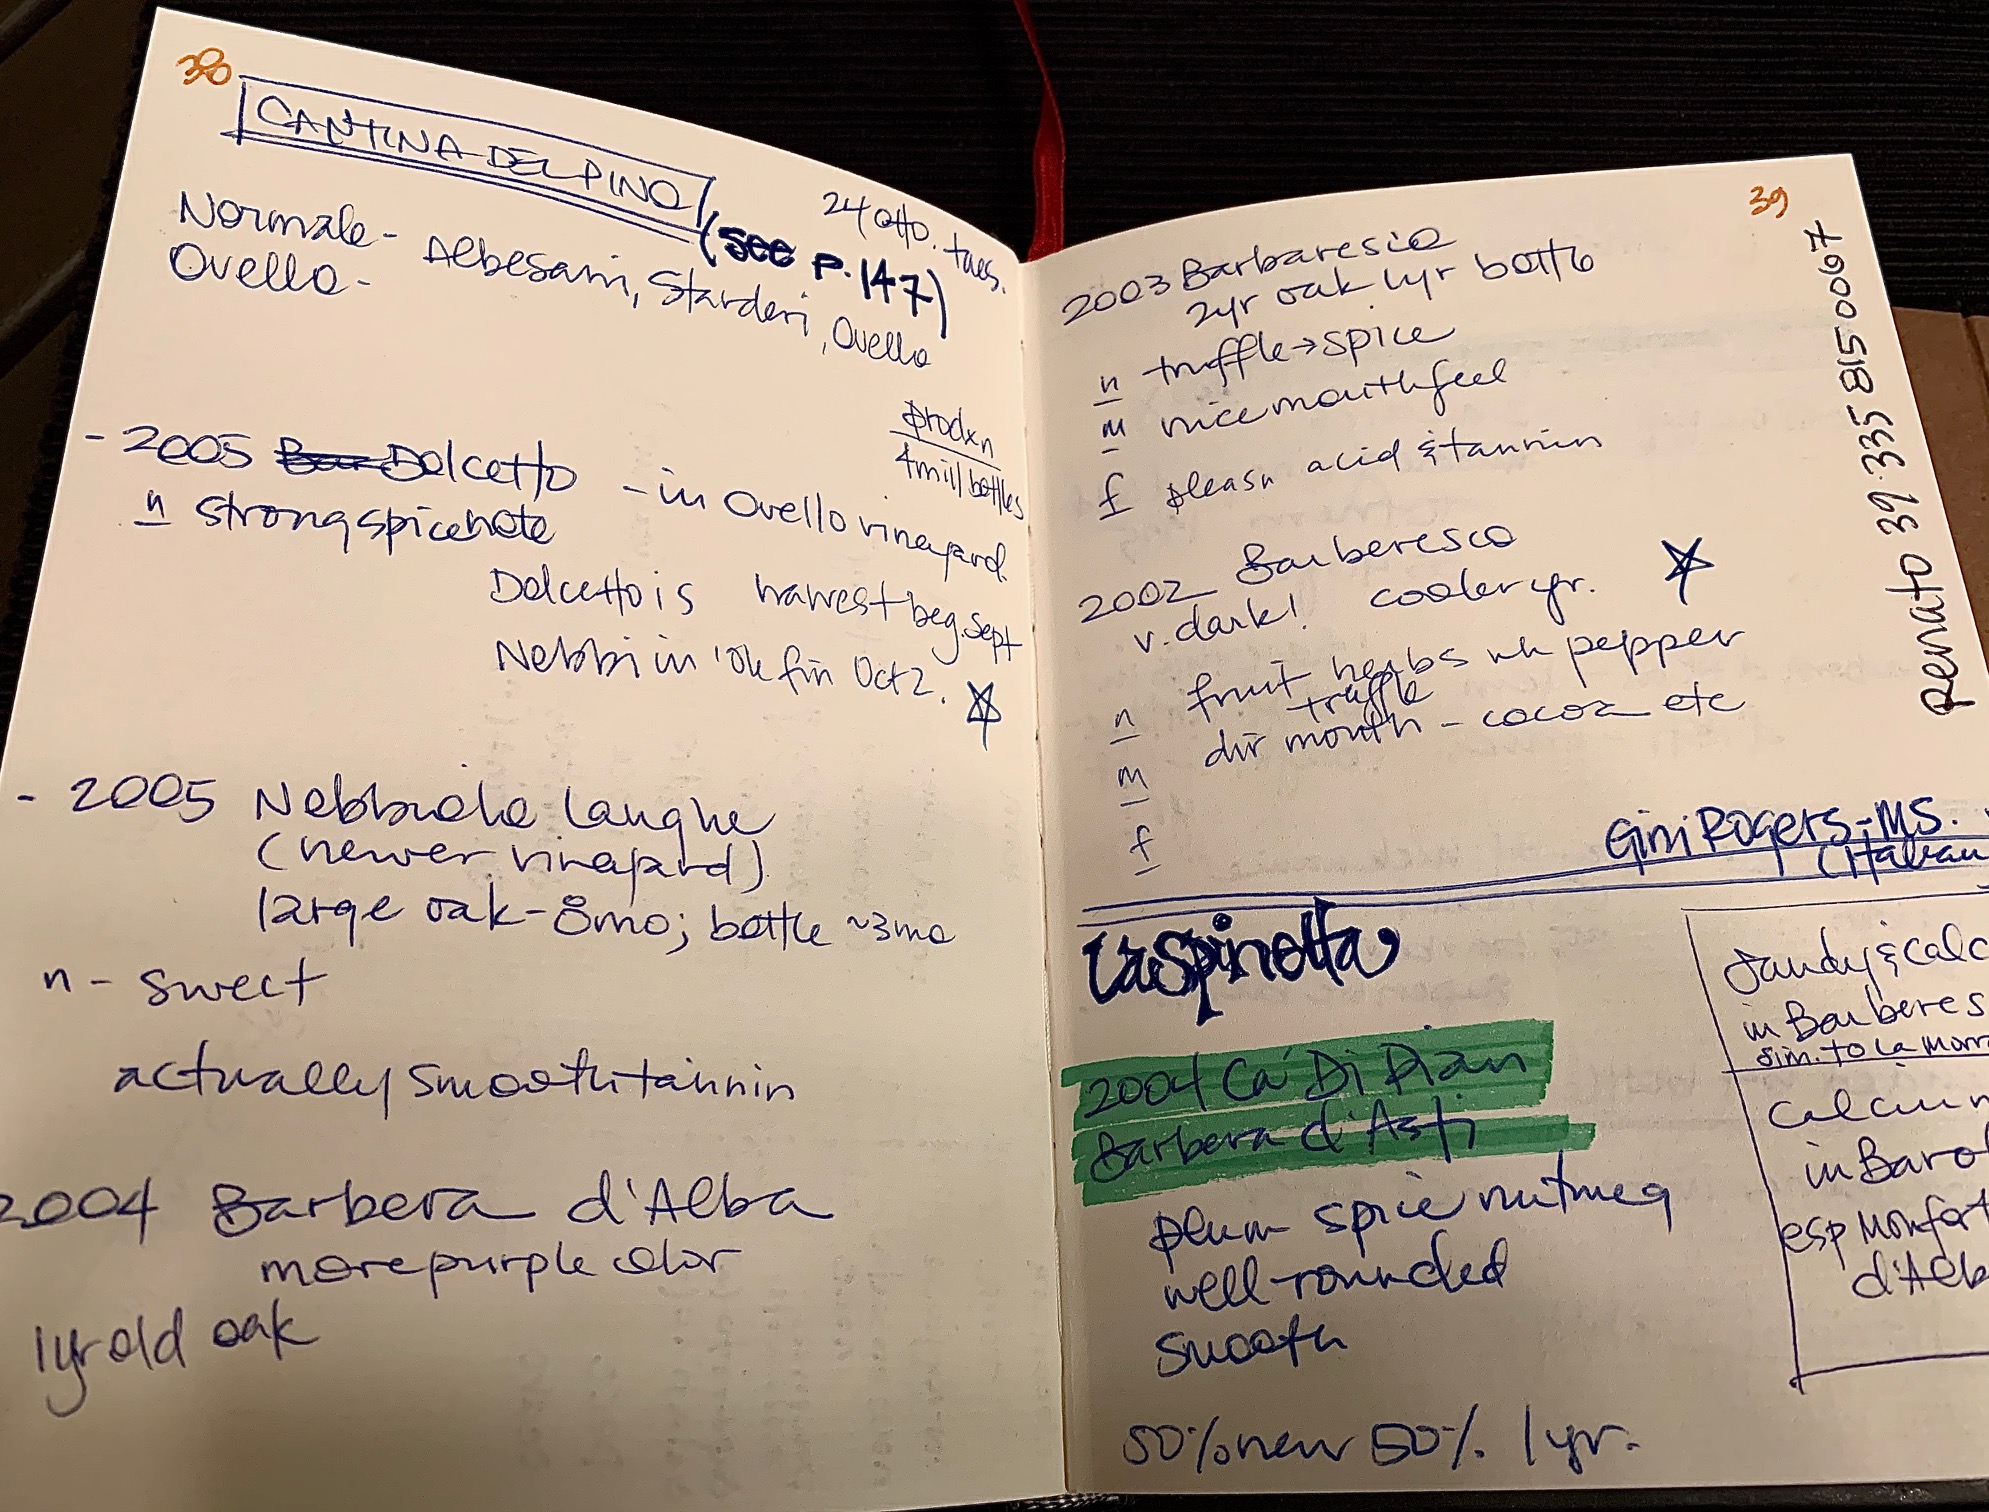 38
CANTINA DEL PINO
24 otto. tues.
(see p. 147)
Normale - Albesani, Starderi, Ovello
Ovello -
prodxn
4mill bottles
- 2005 Dolcetto - in Ovello vineyard.
n strong spice note
Dolcetto is harvest beg. Sept
Nebbi in '06 fin Oct 2.
- 2005 Nebbiolo Langhe
(newer vineyard)
large oak - 8mo; bottle ~3mo
n - sweet
actually smooth tannin
2004 Barbera d'Alba
more purple color
1yr old oak
39
2003 Barbaresco
2yr oak 1yr bottle
n truffle → spice
m nice mouthfeel
f pleasn acid & tannin
2002 Barberesco
v. dark! cooler yr.
n fruit herbs wh pepper
truffle
m mouth - cocoa etc
f
Renato 39.335 815 0067
Gini Rogers - MS.
(Italian
La Spinetta
2004 Ca' Di Pian
Barbera d'Asti
plum spice nutmeg
well-rounded
smooth
50% new 50% 1yr.
Sandy & calc
in Barberes
sim. to La Morra
Calcium
in Barol
esp Monfort
d'Alb